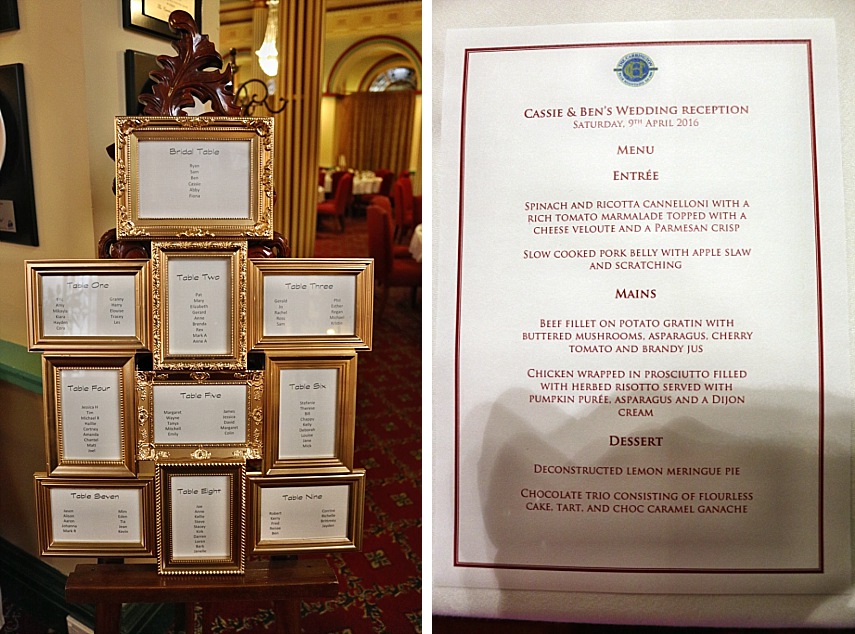 Bridal Table
Ryan
Sam
Ben
Cassie
Abby
Fiona
Table One
Granny
Amy
Harry
Mikayla
Eloise
Kiara
Tracey
Hayden
Les
Cora
Table Two
Pat
Mary
Elizabeth
Gerard
Anne
Brenda
Rex
Mark A
Anne A
Table Three
Gerald
Phil
Jo
Esther
Rachel
Regan
Ross
Michael
Sam
Kristie
Table Four
Jessica H
Tim
Michael B
Hallie
Cortney
Amanda
Chantel
Matt
Joel
Table Five
Margaret
James
Wayne
Jessica
Tanya
David
Mitchell
Margaret
Emily
Colin
Table Six
Stefanie
Therese
Bill
Chappy
Kelly
Deborah
Louise
Jane
Mick
Table Seven
Jason
Alison
Aaron
Tia
Johanna
Jean
Mark R
Kevin
Table Eight
Anne
Kellie
Steve
Stacey
Kirk
Darren
Loren
Barb
Janelle
Table Nine
Robert
Corrine
Kerry
Richelle
Fred
Brittney
Renee
Jayden
Ben
Cassie & Ben's Wedding reception
Saturday, 9th April 2016
Menu
Entrée
Spinach and ricotta cannelloni with a
rich tomato marmalade topped with a
cheese veloute and a Parmesan crisp
Slow cooked pork belly with apple slaw
and scratching
Mains
Beef fillet on potato gratin with
buttered mushrooms, asparagus, cherry
tomato and brandy jus
Chicken wrapped in prosciutto filled
with herbed risotto served with
pumpkin purée, asparagus and a Dijon
cream
Dessert
Deconstructed lemon meringue pie
Chocolate trio consisting of flourless
cake, tart, and choc caramel ganache